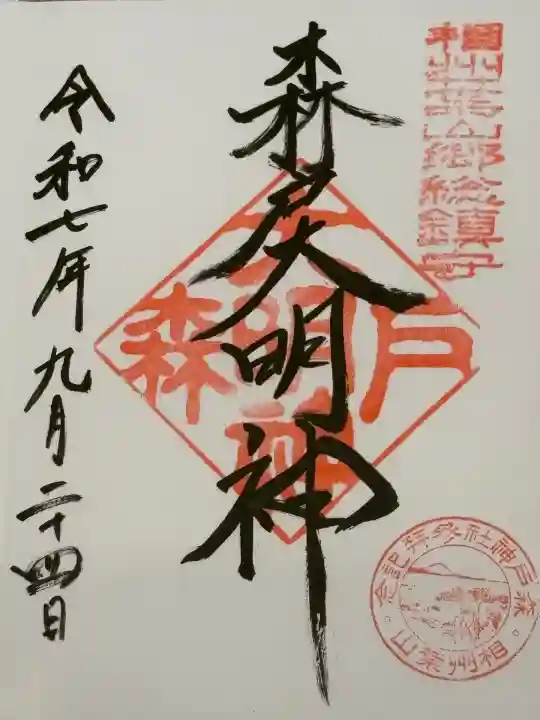 相州葉山郷総鎮守
森戸大明神
森戸大明神
森戸神社参拝記念
相州葉山
令和七年九月二十四日